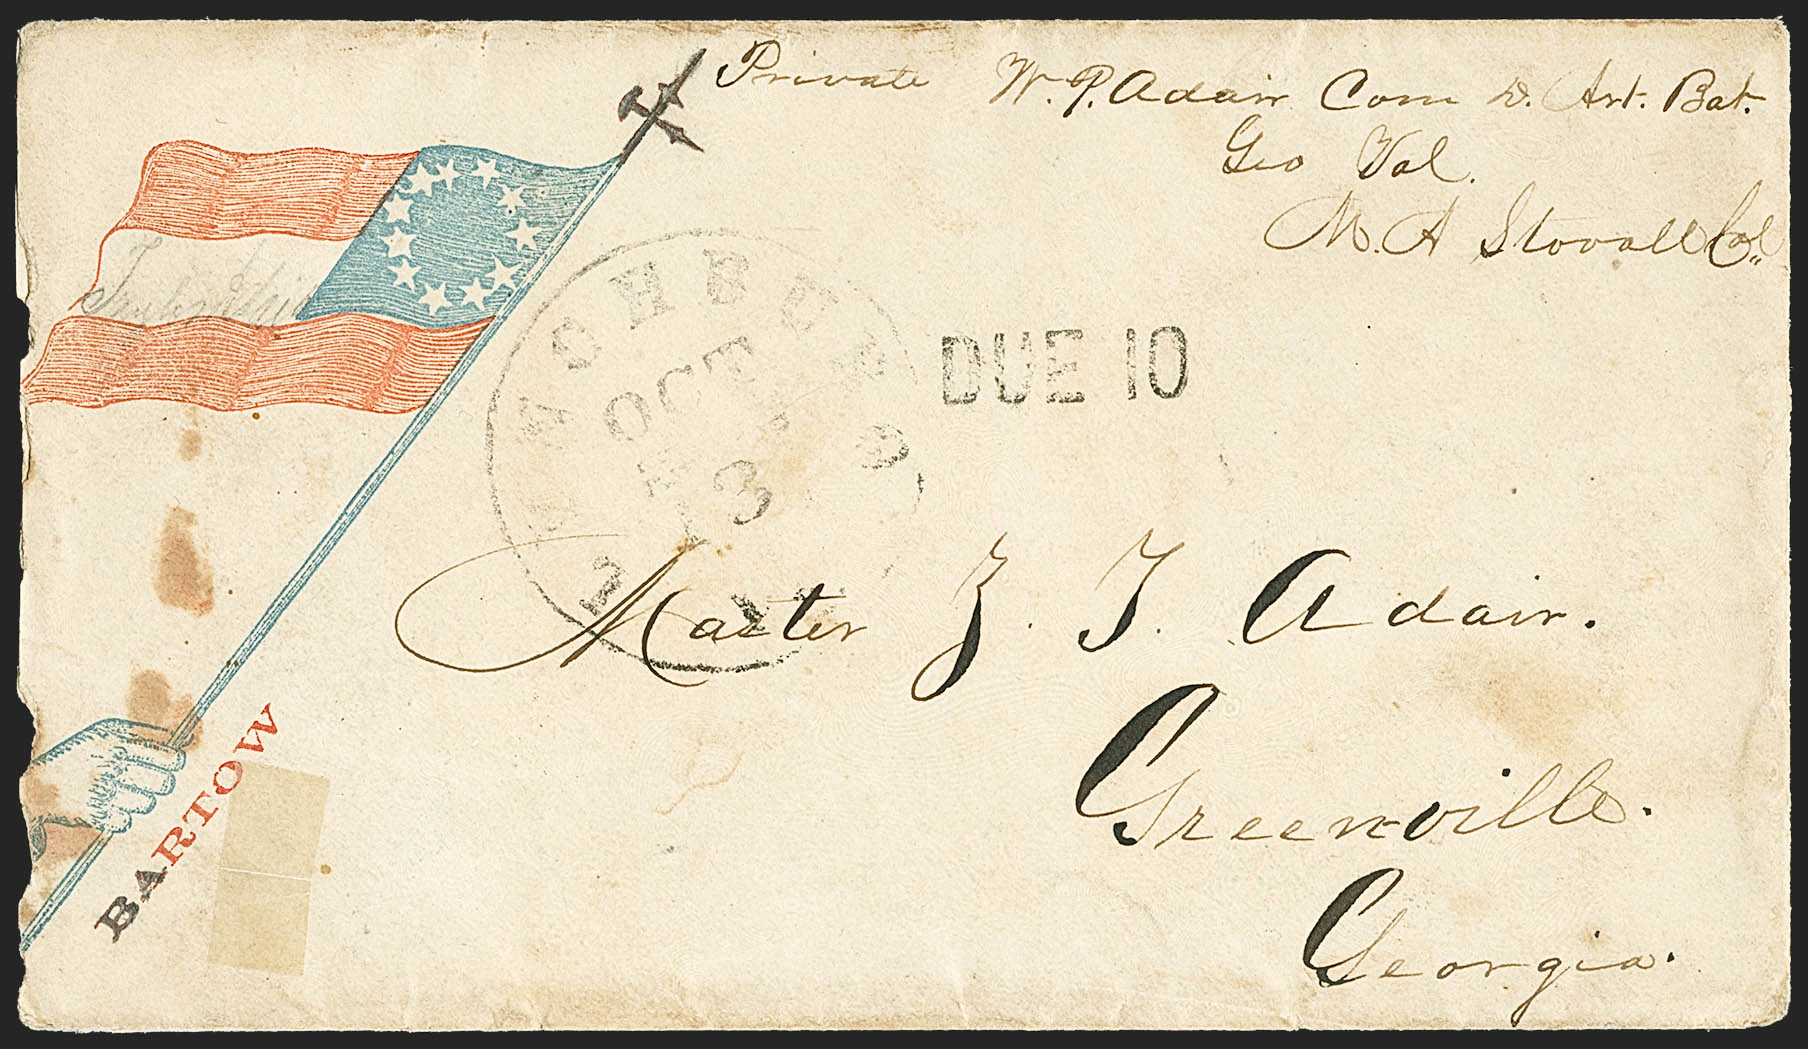 Private W. P. Adair Com D. Art. Bat.
Geo Vol.
M. A Stovall Col.
OCT
13
DUE 10
Master Z. T. Adair.
Greenville.
Georgia.
BARTOW